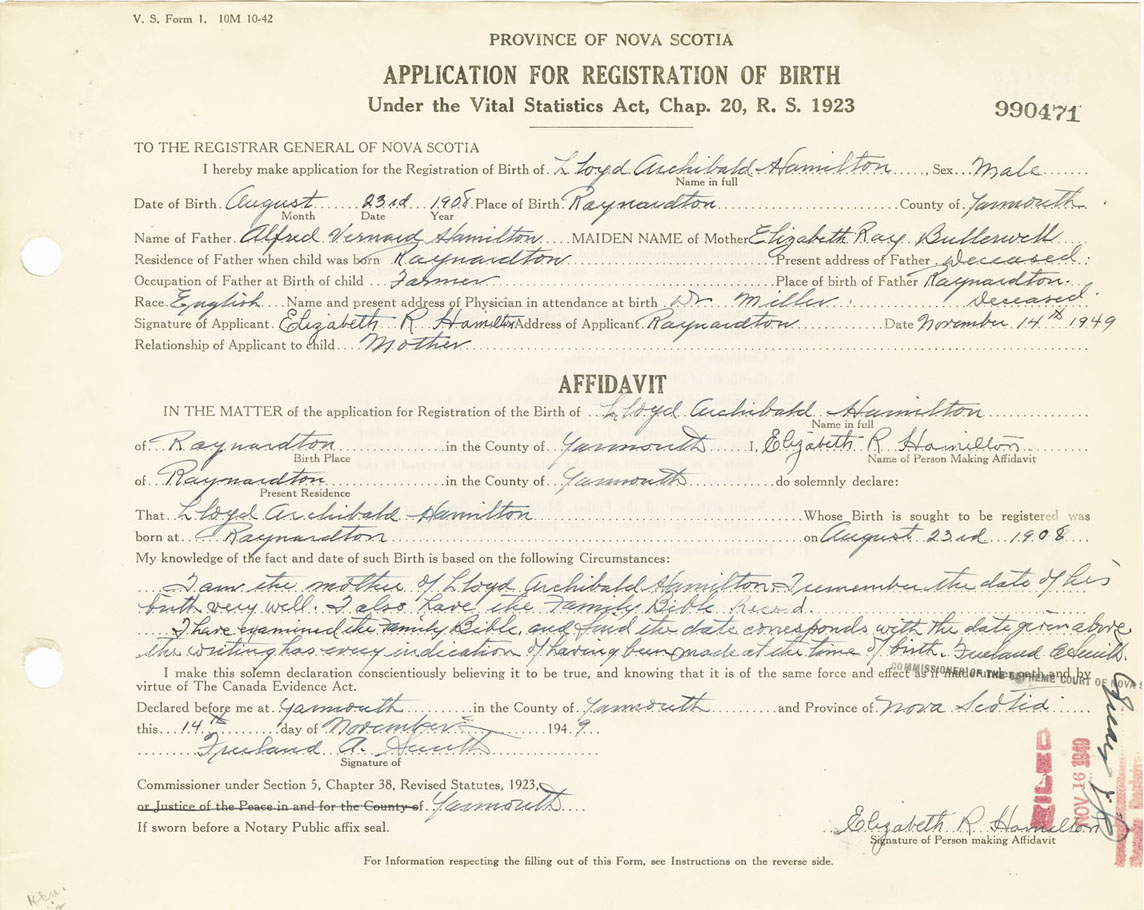 V. S. Form 1. 10M 10-42
PROVINCE OF NOVA SCOTIA
APPLICATION FOR REGISTRATION OF BIRTH
Under the Vital Statistics Act, Chap. 20, R. S. 1923
990471
TO THE REGISTRAR GENERAL OF NOVA SCOTIA
I hereby make application for the Registration of Birth of Lloyd Archibald Hamilton, Sex Male
Name in full
Date of Birth August 23rd 1908 Place of Birth Raynardton County of Yarmouth
Month Date Year
Name of Father Alfred Vernard Hamilton MAIDEN NAME of Mother Elizabeth Ray Butterwell
Residence of Father when child was born Raynardton Present address of Father Deceased
Occupation of Father at Birth of child Farmer Place of birth of Father Raynardton
Race English Name and present address of Physician in attendance at birth Dr Miller Deceased
Signature of Applicant Elizabeth R Hamilton Address of Applicant Raynardton Date November 14th 1949
Relationship of Applicant to child Mother
AFFIDAVIT
IN THE MATTER of the application for Registration of the Birth of Lloyd Archibald Hamilton
Name in full
of Raynardton in the County of Yarmouth I, Elizabeth R Hamilton
Birth Place Name of Person Making Affidavit
of Raynardton in the County of Yarmouth do solemnly declare:
Present Residence
That Lloyd Archibald Hamilton Whose Birth is sought to be registered was
born at Raynardton on August 23rd 1908
My knowledge of the fact and date of such Birth is based on the following Circumstances:
I am the mother of Lloyd Archibald Hamilton. I remember the date of his
birth very well. I also have the Family Bible Record.
I have examined the Family Bible, and find the date corresponds with the date given above
the writing has every indication of having been made at the time of birth. Freeland A Smith.
I make this solemn declaration conscientiously believing it to be true, and knowing that it is of the same force and effect as if made under oath and by
COMMISSIONER OF THE SUPREME COURT OF NOVA S
virtue of The Canada Evidence Act.
Declared before me at Yarmouth in the County of Yarmouth and Province of Nova Scotia
this 14th day of November 1949
Freeland A. Smith
Signature of
Commissioner under Section 5, Chapter 38, Revised Statutes, 1923,
or Justice of the Peace in and for the County of Yarmouth
If sworn before a Notary Public affix seal.
FILED
NOV 16 1949
Elizabeth R Hamilton
Signature of Person making Affidavit
For Information respecting the filling out of this Form, see Instructions on the reverse side.